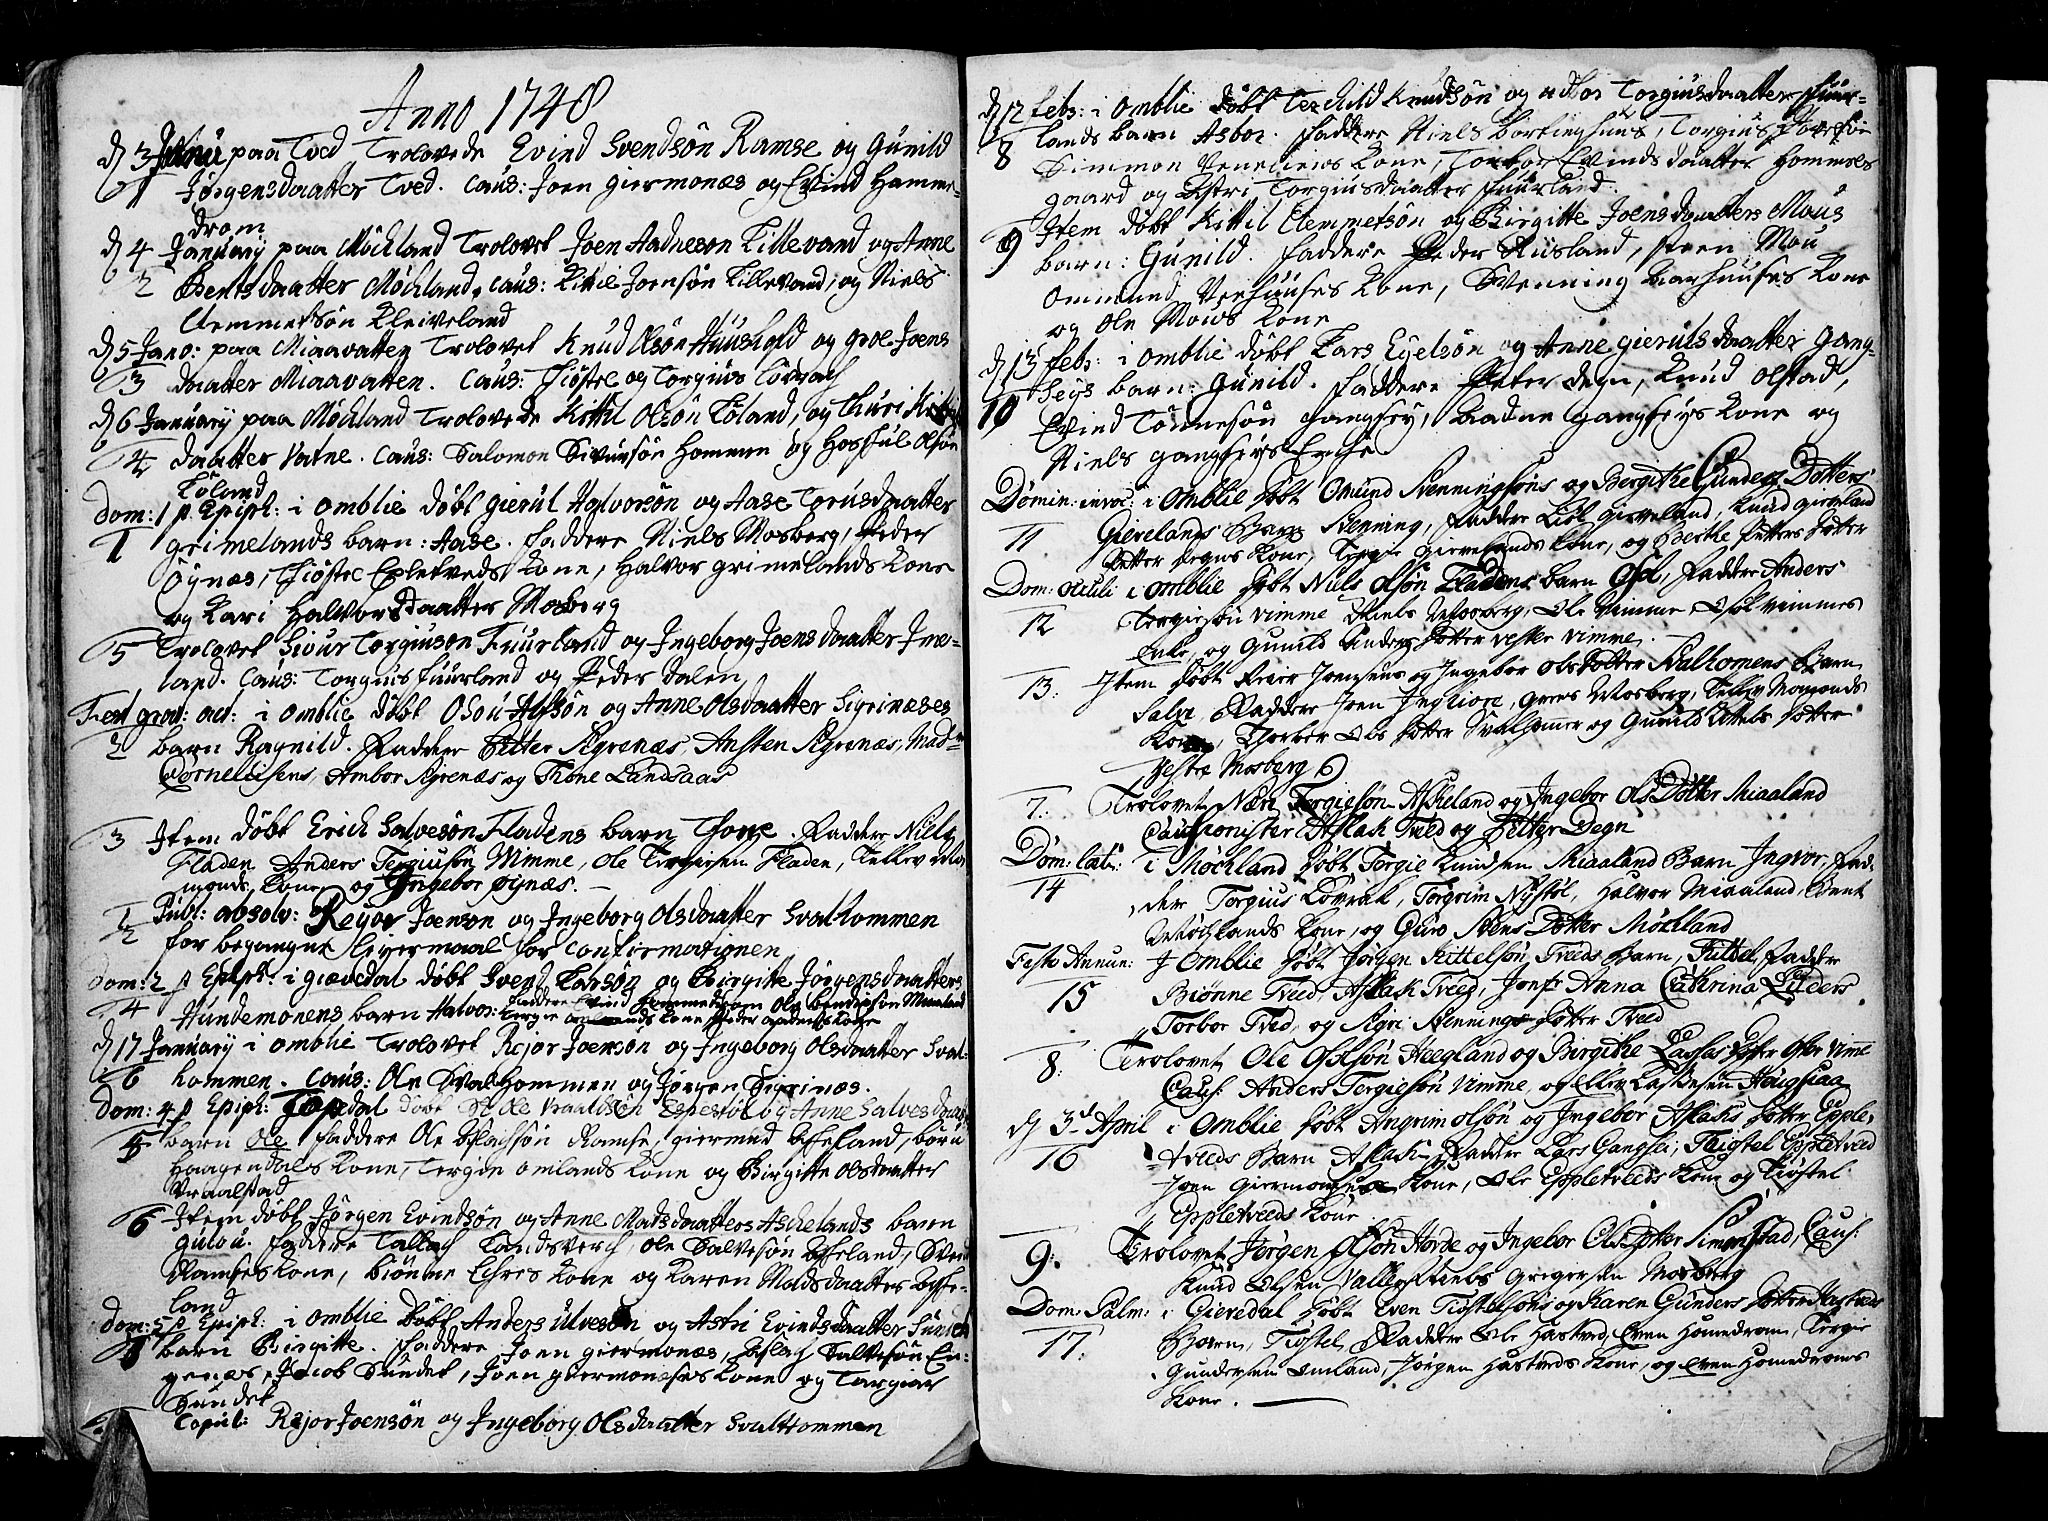 Anno 1748
d 3 Janu paa Tved Trolovede Evind Svendsön Ramse og Gunild
1 Jørgensdaatter Tved. Caus: Joen Giermonæs og Evind Hamme-
drom
d 4 January paa Möckland Trolovet Joen Aadneson Lillevand og Anne
2 Bentsdaatter Möckland. Caus: Joensön Lillevand, og Niels
Clemmetsön Kleiveland
d 5 Jano: paa Miaavatten Trolovet Knud Olsön Huushold og Groe Joens
3 daatter Miaavatten. Caus: Tiöstel og Torgius Lövrach
d 6 January paa Möckland Trolovede Kittil Olsön Töland, og Thuri
4 daatter Vatne. Caus: Salomon Sivursön Hommen og Olsön
Töland
Dom: 1 p Epiph: i Omblie döbt Gierul Halvorsön og Aase Torusdaatter
1 Grimelands barn: Aase. Faddere Niels Mosberg, Peder
Öynæs, Tiöstel Epletveds Kone, Halvor Grimelands Kone
og Kari Halvorsdaatter Mosberg
5 Trolovet Sivur Torgiuson Fuurland og Ingeborg Joens daatter
land. Caus: Torgius Fuurland og Peder Dalen
Fest i Omblie döbt Osou Alfsön og Anne Olsdaatter Sigrinæses
2 barn Ragnild. Faddere Petter Sigrenæs, Ansten Sigrenæs, Mad
Cornelisens, Ambor Sigrenæs og Tone Landsaas
3 Item döbt Erich Salvesön Fladens barn Thore. Faddere Niels
Fladen, Anders Tergiusön Vimme, Ole Tergiesen Fladen, Tellev Mo
monds Kone og Ingebor Öynæs.
1/2 Publ: absolv: Rejor Joenson og Ingeborg Olsdaatter Svalhommen
for begangne leyermaal för Confirmationen
Dom: 2 p Epiph: i Giævedal döbt Svend Larsön og Birgitte Jørgensdaatters
4 Hundemonens barn Halvor: Faddere Evind Hommedrom Ole Bendixsön Miaaland
Tergie Omlands Kone Peder Kone
d 17 January i Omblie Trolovet Rejor Joensön og Ingeborg Olsdaatter Sval-
6 hommen. Caus: Ole Svalhommen og Jørgen Sigrinæs.
Dom: 4 p Epiph: döbt Ole Vraaldsen Espestöl og Anne Salvesdaatter
5 barn Ole Faddere Ole Aslachsön Ramse, Giermund Askeland,
Haagendals Kone, Tergie Omlands Kone og Birgitte Olsdaatter
Vraalstad
6 Item döbt Jörgen Evindsön og Anne Madsdaatters Aschelands barn
Faddere Tallach Ole Salvesön Askeland, Svend
Ramses Kone, Biönne Kone og Karen Madsdaatter Aske-
land
Dom: 5 p Epiph: i Omblie döbt Anders Ulvesön og Astri Evindsdaatter Sundets
7 barn Birgitte. Faddere Joen Giermonæs, Aslach Salvesön En-
genæs, Jacob Sundet, Joen Giermonæses Kone og Targier
Sundet
Copul: Rejor Joensön og Ingeborg Olsdaatter Svalhommen
d 12 Febs: i Omblie döbt Terchild Knudsön og Torgiusdaatter Fuur-
8 lands barn Asbor. Faddere Niels Torgius
Simmon Kone, Torbor Evindsdaatter Hommels
gaard og Torgiusdaatter Fuurland.
9 Item döbt Kittil Clemmetsön og Birgitte Joensdaatters Mous
barn: Gunild. Faddere Peder Risland, Steen Mou
Ommund Veehuuses Kone, Svenning Barhuuses Kone
og Ole Mows Kone
d 13 Febs: i Omblie döbt Lars Egelsön og Anne Gierulsdaatter Gang-
10 seys barn: Gunild. Faddere Peter Degn, Knud Olstad,
Evind Tönnesön Gangsey, Aadne Gangseys Kone og
Niels Gangseys Enche
Domin: invoc: i Omblie döbt Omund Svenningsöns og Bergithe Gunders Dotters
11 Gierelands Barn Svenning, Fadder Gierelund, Knud Giereland
Petter Degns Kone, Tergie Gierelands Kone, og Berthe Petters Dotter
Dom: Oculi i Omblie döbt Niels Olsön Fladens barn Osol, Fadder Anders
12 Tergiesön Vimme Niels Mosberg, Ole Vimme, Osöl Vimmes
Enke, og Gunild Anders Dotter Vestre Vimme.
13. Item döbt Reier Joensens og Ingebor Ols Dotter Svalhomens Barn
Salve, Fadder Joen Jngliore, Greers Mosberg, Tellev Momonds
Kone, Thorbor Ols Dotter Svalhomer og Gunild Kittels Dotter
Vestre Mosberg
7. Trolovet Næri Torgiesön Askeland og Ingebor Ols Dötter Miaaland
Cautionister Aslack Tved og Petter Degn
Dom: Læt: i Möchland döbt Torgie Knudsen Miaaland Barn Ingvor, Fad-
14 der Torgius Lövrak, Torgrim Nystöl, Halvor Miaaland, Bent
Möchlands Kone, og Guro Stens Dotter Möchland
Festo Annun: J Omblie döbt Jörgen Kittelsön Tveds Barn, Kittel, Fadder
15 Biönne Tved, Aslack Tved, Jonfr Anna Cathrina Lüders
Torbor Tved, og Sigri Svennings Dotter Tved
8. Trolovet Ole Osolsön Heegland og Birgithe Lasses Dotter Østre Vimme
Caus: Anders Torgiesön Vimme, og Ellev Lassesen Haugsiaa
d 3d April i Omblie döbt Angrim Olsön og Ingebor Aslaks Dotter Epple-
16 tveds Barn Aslak. Fadder Lars Gangsei, Tiøstel Eppletveed
Joen Giermones Kone, Ole Eppletveeds Kone og Tiøstel
Eppletveeds Kone
9. Trolovet Jørgen Olsön Horde og Ingebor Ols Dotter Simonstad, Caus:
Knud Olsen Valle, Niels Gregersen Mosberg
Dom: Palm: i Gieredal döbt Even Tiøstelsöns og Karen Gunders Dotter Hasteds
17. Barn, Tiøstel, Fadder Ole Hasteed, Even Homedrom, Tergie
Gundersen Omland, Jørgen Hasteds Kone, og Even Homedroms
Kone.